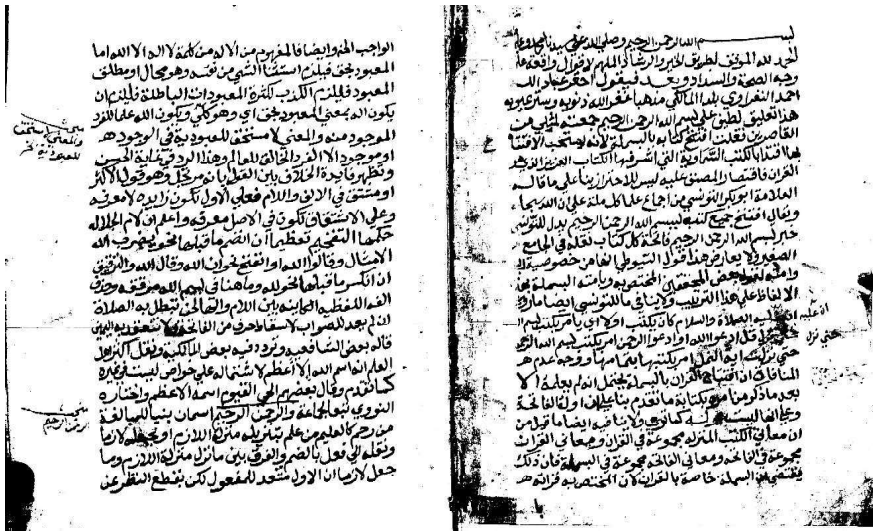 بسم الله الرحمن الرحيم وصلى الله على سيدنا محمد وعلى
الحمد لله الموفق لطريق الخير والرشاد الملهم لاقوال واقعة على
وجه الصحة والسداد وبعد فيقول احقر عباد الله
احمد النفراوي بلدا المالكي مذهبا غفر الله ذنوبه وستر عيوبه
هذا تعليق لطيف على بسم الله الرحمن الرحيم جمعته لمثلي من
القاصرين فقلت افتتح كتابه بالبسملة لانه يستحب الافتتا
بها اقتدا بالكتب السماوية التي اشرفها الكتاب العزيز
القران فاقتصار المصنف عليه ليس للاحتراز بنا على ما قاله
العلامة ابو بكر التونسي من اجماع علما كل ملة على ان الله سبحانه
وتعالى افتتح جميع كتبه ببسم الله الرحمن الرحيم يدل للتونسي
خبر بسم الله الرحمن الرحيم فاتحة كل كتاب نقله في الجامع
الصغير ولا يعارض هذا قول السيوطي انها من خصوصية
لقول بعض المحققين المختص به وبامته البسملة بهذه
الالفاظ على هذا الترتيب ولا ينافي ما للتونسي ايضا ما روي
انه عليه
عليه الصلاة والسلام كان يكتب اولا اي يامر بكتب بسم الله
حتى نزل
حتى نزل قل ادعوا الله او ادعوا الرحمن امر بكتب بسم الله الرحمن
حتى نزلت اية النمل امر بكتبها بتمامها ووجه عدم
المنافاة ان افتتاح القران بالبسملة يحتمل انه لم يعلمه الا
بعد ما ذكر من امره بكتابة ما تقدم بنا على ان اولة الفاتحة
ولا ينافيه ايضا ما قيل من
ان معاني الكتب المنزلة مجموعة في القران ومعاني القران
مجموعة في الفاتحة ومعاني الفاتحة مجموعة في البسملة فان ذلك
يقتضي ان البسملة خاصة بالقران لان المختص به قرانه
الواجب الخ وايضا فالمفهوم من الاله من كلمة لا اله الا الله اما
المعبود بحق فيلزم استثنا الشي من نفسه وهو محال او مطلق
المعبود فيلزم الكذب لكثرة المعبودات الباطلة فيلزم ان
يكون اله بمعنى المعبود بحق اي وهو كلي ويكون الله علما للفرد
الموجود منه والمعنى لا مستحق للعبودية في الوجود
او موجود الا الفرد الخالق للعالم وهذا الرد في غاية الحسن
وتظهر فايدة الخلاف بين القول بانه مرتجل وهو قول الاكثر
او مشتق في الالف واللام فعلى الاول تكون زايدة لا معرفة
وعلى الاشتقاق تكون في الاصل معرفة واعلم ان لام الجلالة
حكمها التفخيم تعظيما ان انضم ما قبلها نحو يضرب الله
الامثال وقالوا الله او انفتح نحو ان الله وقال الله والترقيق
ان انكسر ما قبلها نحو لله وما هنا في بسم الله مرققة وحذف
الفه اللفظية الكاينة بين اللام والها لحن تبطل به الصلاة
ان لم يعد للصواب لاسقاط حرف من الفاتحة ولا تنعقد به اليمين
قاله بعض الشافعية وتردد فيه بعض المالكية ونقل اكثر اهل
العلم انه اسم الله الاعظم لاشتماله على خواص ليست في غيره
كما تقدم وقال بعضهم الحي القيوم اسمه الاعظم واختاره
النووي تبعا لجماعة والرحمن الرحيم اسمان بنيا للمبالغة
من رحم كالعليم من علم بتنزيله منزلة اللازم او بجعله لازما
ونقله الى فعل بالضم والفرق بين ما نزل منزلة اللازم وما
جعل لازما ان الاول متعد للمفعول لكن بقطع النظر عن